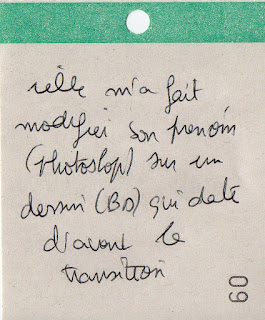 ielle m'a fait
modifier son prénom
(photoshop) sur un
dessin (BD) qui date
d'avant le
transition
60